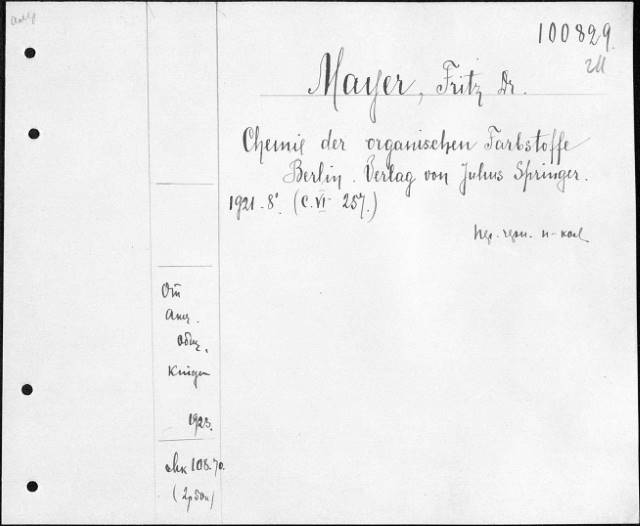 100829.
Mayer, Fritz Dr.
Chemie der organischen Farbstoffe
Berlin. Verlag von Julius Springer.
1921-8°. (C. VI- 257.)
От
Акц.
Общ.
Книга
1923.
108.70.